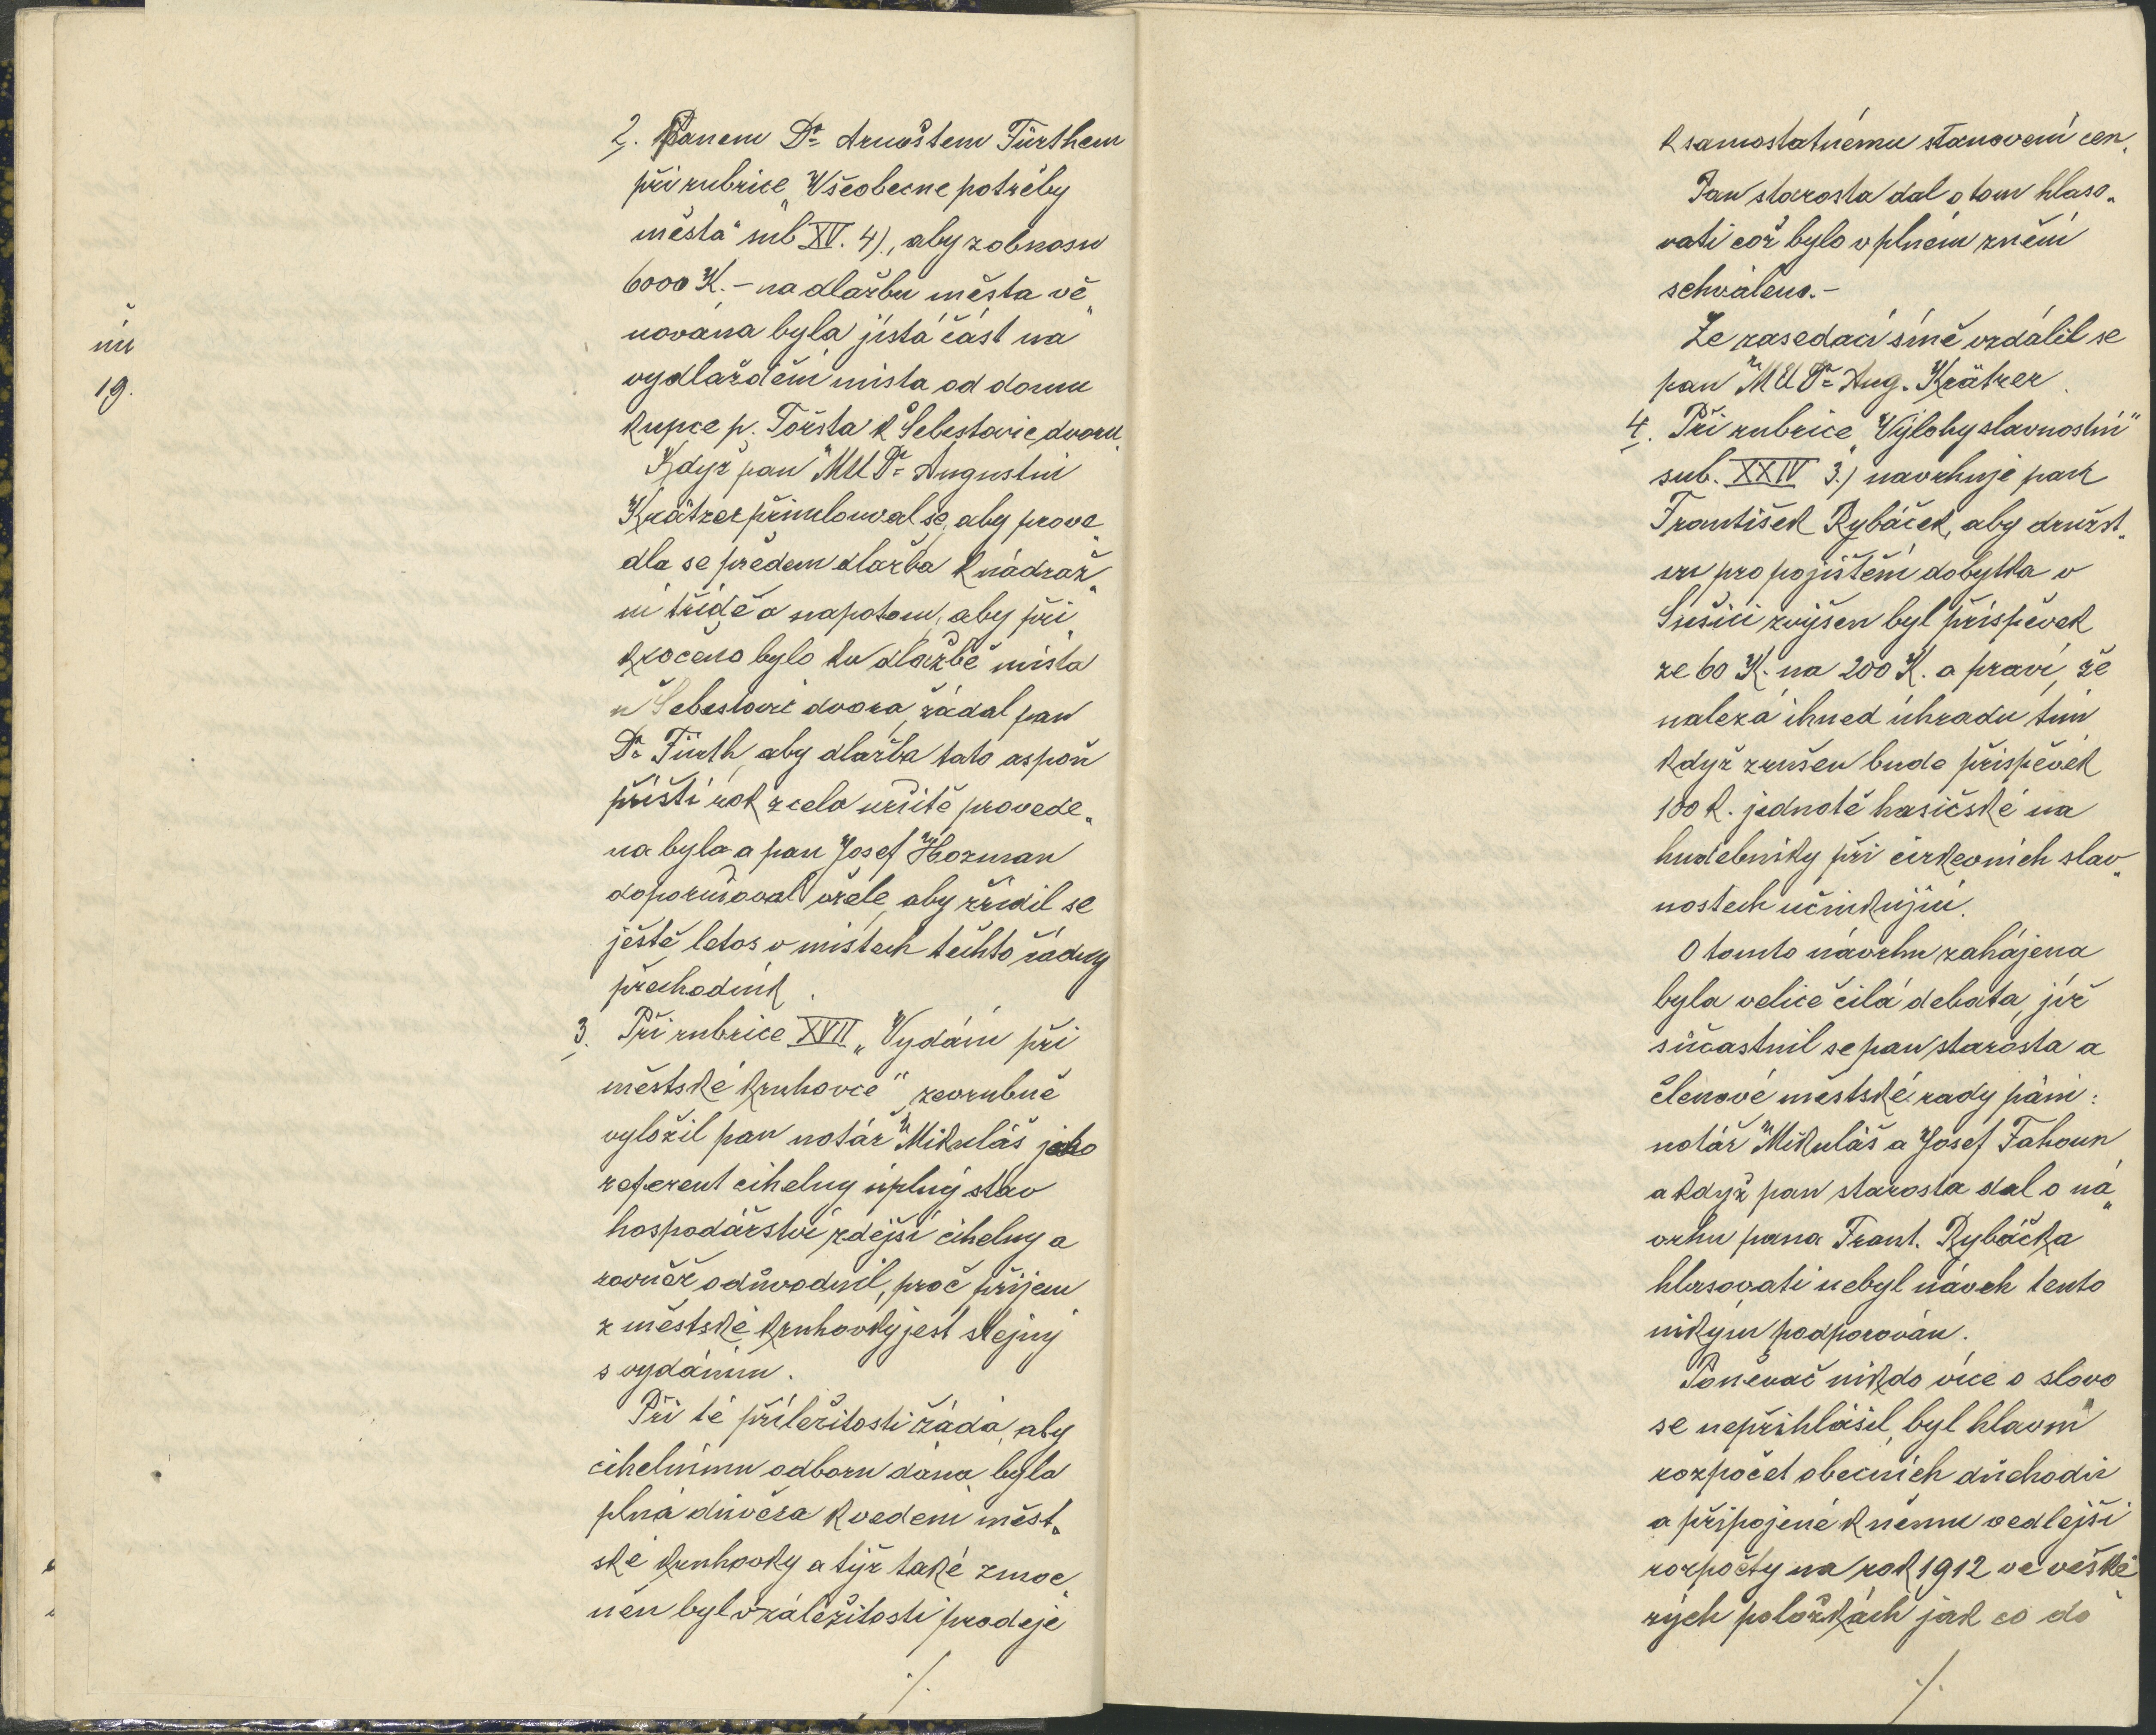 ní
19.
2. Panem Dr Arnoštem Fürthem
při rubrice „Všeobecne potřeby
města" sub XV. 4)., aby z obnosu
6000 K. – na dlažbu města vě„
nována byla jistá část na
vydláždění místa od domu
kupce p. Foršta k Šebestovic dvoru.
Když pan MUDr Augustin
Krätzer přimlouval se, aby prove„
dla se předem dlažba k nádraž„
ní třídě a napotom, aby při„
kročeno bylo ku dlažbě místa
u Šebestovic dvora, žádal pan
Dr Fürth, aby dlažba tato aspoň
příští rok zcela určitě provede„
na byla a pan Josef Hozman
doporučoval vřele, aby zřídil se
ještě letos v místech těchto řádný
přechodník.
3. Při rubrice XVII „Vydání při
městské kruhovce" zevrubně
vyložil pan notář Mikuláš jako
referent cihelny úplný stav
hospodářství zdejší cihelny a
rovněž odůvodnil, proč příjem
z městské kruhovky jest stejný
s vydáním.
Při té příležitosti žádá, aby
cihelnímu odboru dána byla
plná důvěra k vedení měst„
ské kruhovky a týž také zmoc„
něn byl v záležitosti prodeje
./.
k samostatnému stanovení cen.
Pan starosta dal o tom hlaso„
vati což bylo v plném znění
schváleno. –
Ze zasedací síně vzdálil se
pan MUDr Aug. Krätzer.
4. Při rubrice „Výlohy slavnostní"
sub. XXIV 3.) navrhuje pan
František Rybáček, aby družst„
vu pro pojištění dobytka v
Sušici zvýšen byl příspěvek
ze 60 K. na 200 K. a praví, že
nalezá ihned úhradu tím
když zrušen bude příspěvek
100 K. jednotě hasičské na
hudebníky při církevních slav„
nostech účinkující.
O tomto návrhu zahájena
byla velice čilá debata, jíž
súčastnil se pan starosta a
členové městské rady páni:
notář Mikuláš a Josef Fahoun
a když pan starosta dal o ná„
vrhu pana Frant. Rybáčka
hlasovati nebyl návrh tento
nikým podporován.
Poněvač nikdo více o slovo
se nepřihlásil, byl hlavní
rozpočet obecních důchodů
a připojené k němu vedlejší
rozpočty na rok 1912 ve veške„
rých položkách jak co do
./.